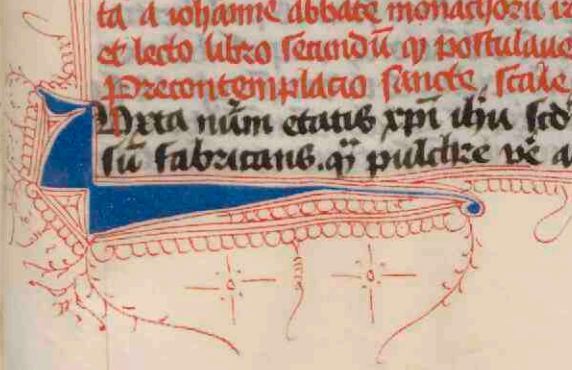 ta a iohanne abbate monachorū
et lecto libro secundū ꝙ postulaue
Precontemplacio sancte scale
IVxta nūm etatis xp̄i ihu scd
sū fabricans. qꝫ pulchre vē a